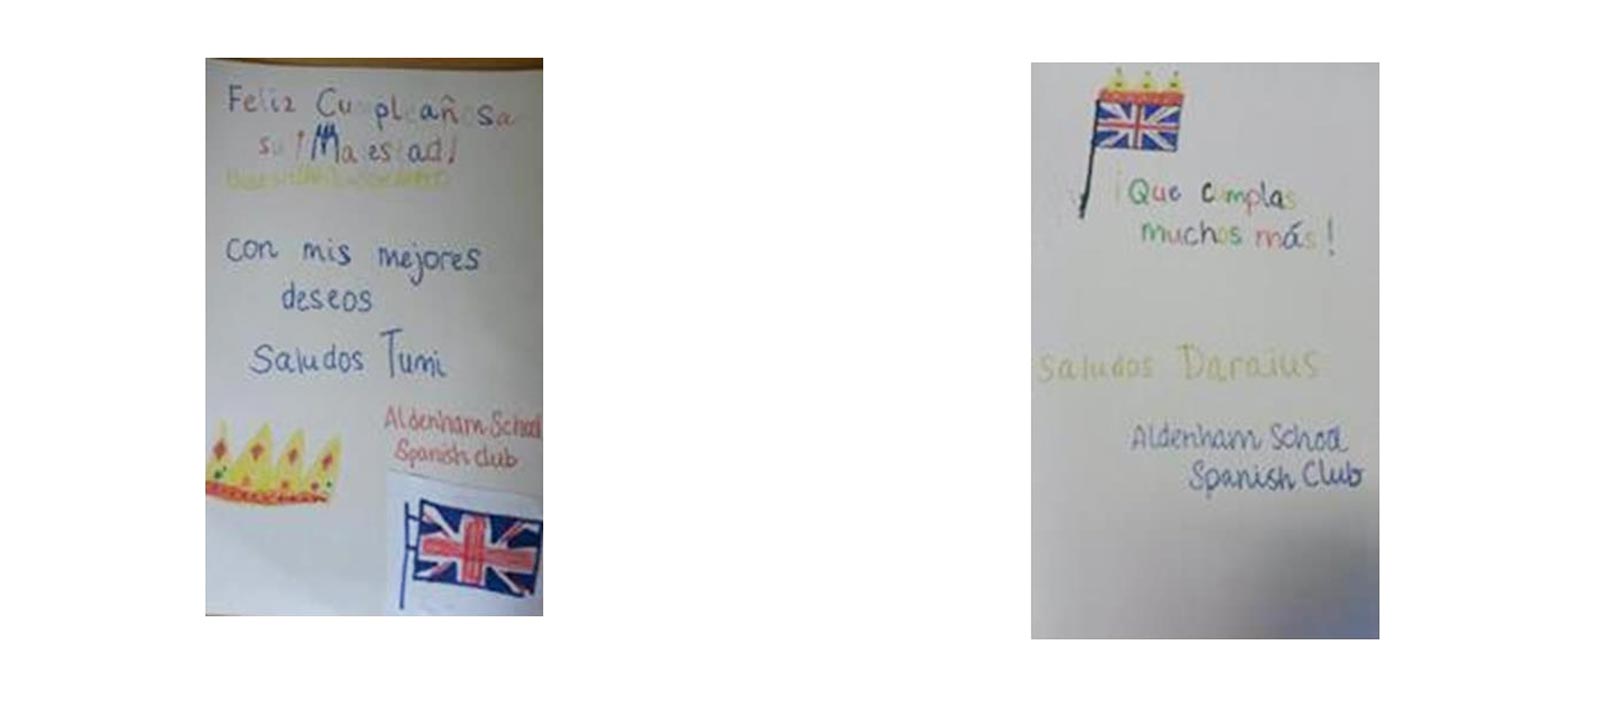 Feliz Cumpleañosa
su ¡Majestad!
con mis mejores
deseos
Saludos Tumi
Aldenham School
Spanish club
¡Que cumplas
muchos más!
Saludos Daraius
Aldenham School
Spanish Club